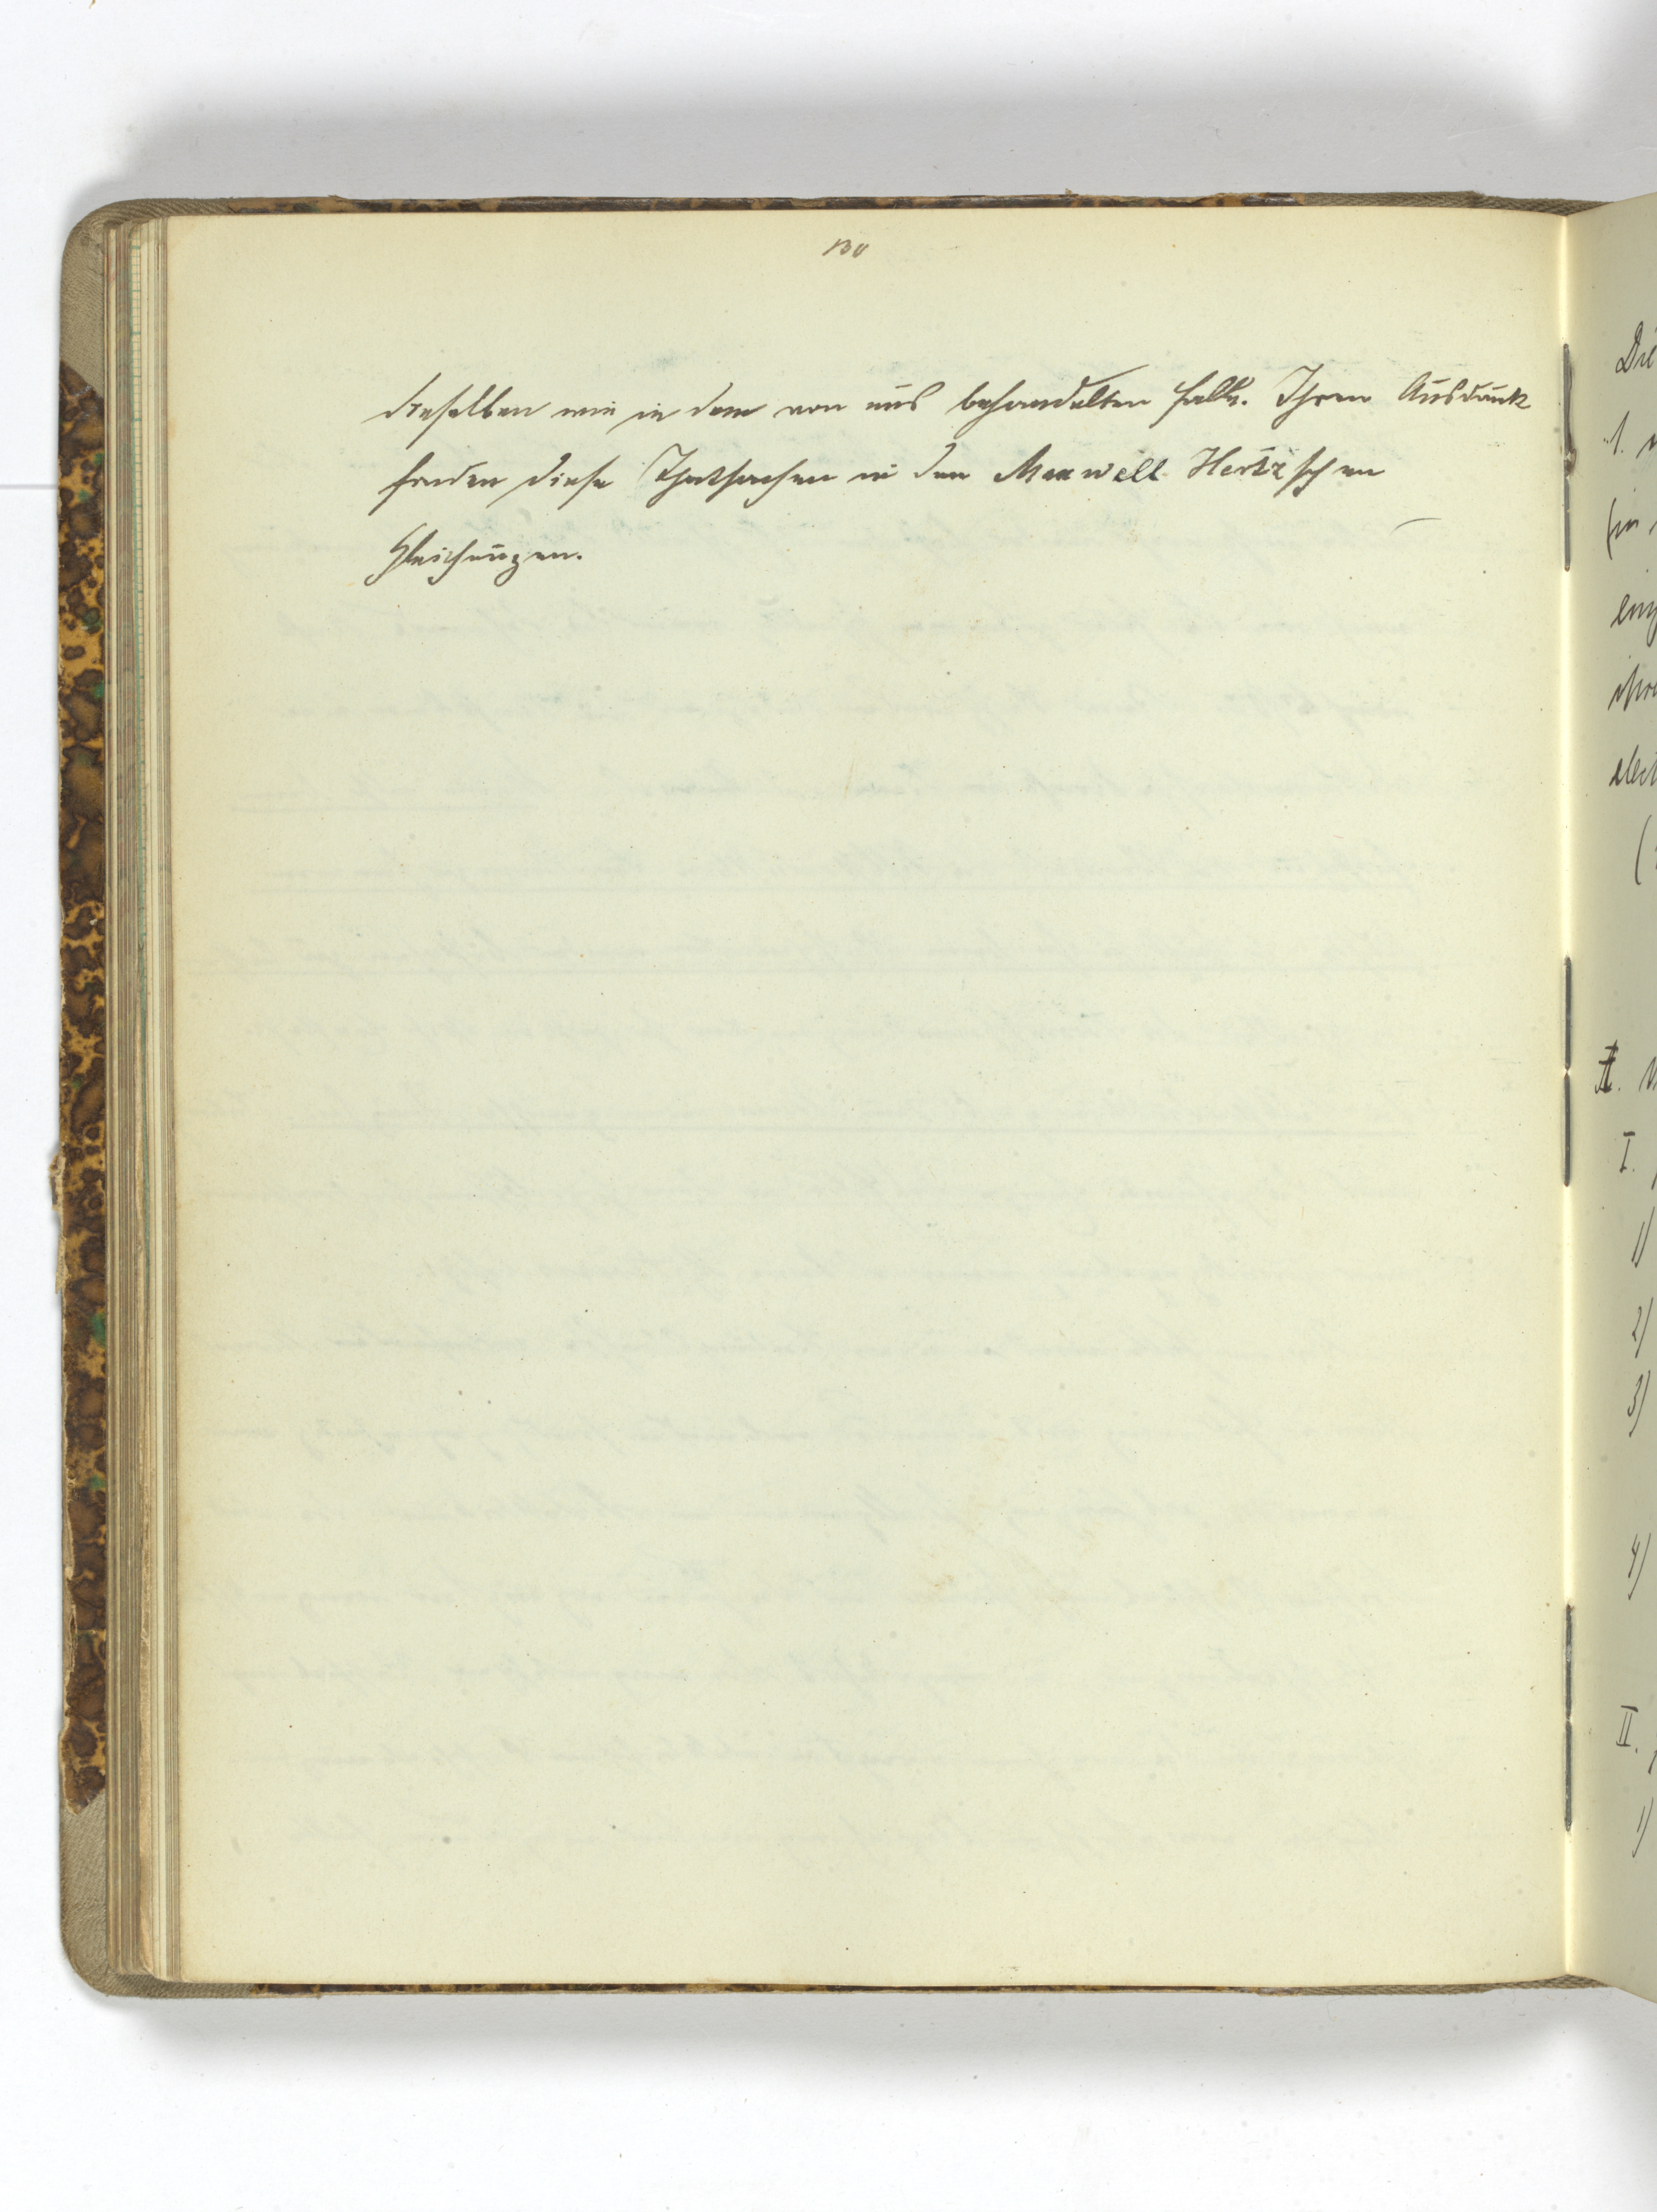 130
dieselben wie in dem von uns behandelten Falle. Ihren Ausdruck
finden diese Thatsachen in den Maxwell Hertz'schen
Gleichungen.
Die
1.
ein
ihre
elect
(
II.
I.
1)
2)
3)
4)
II.
1)